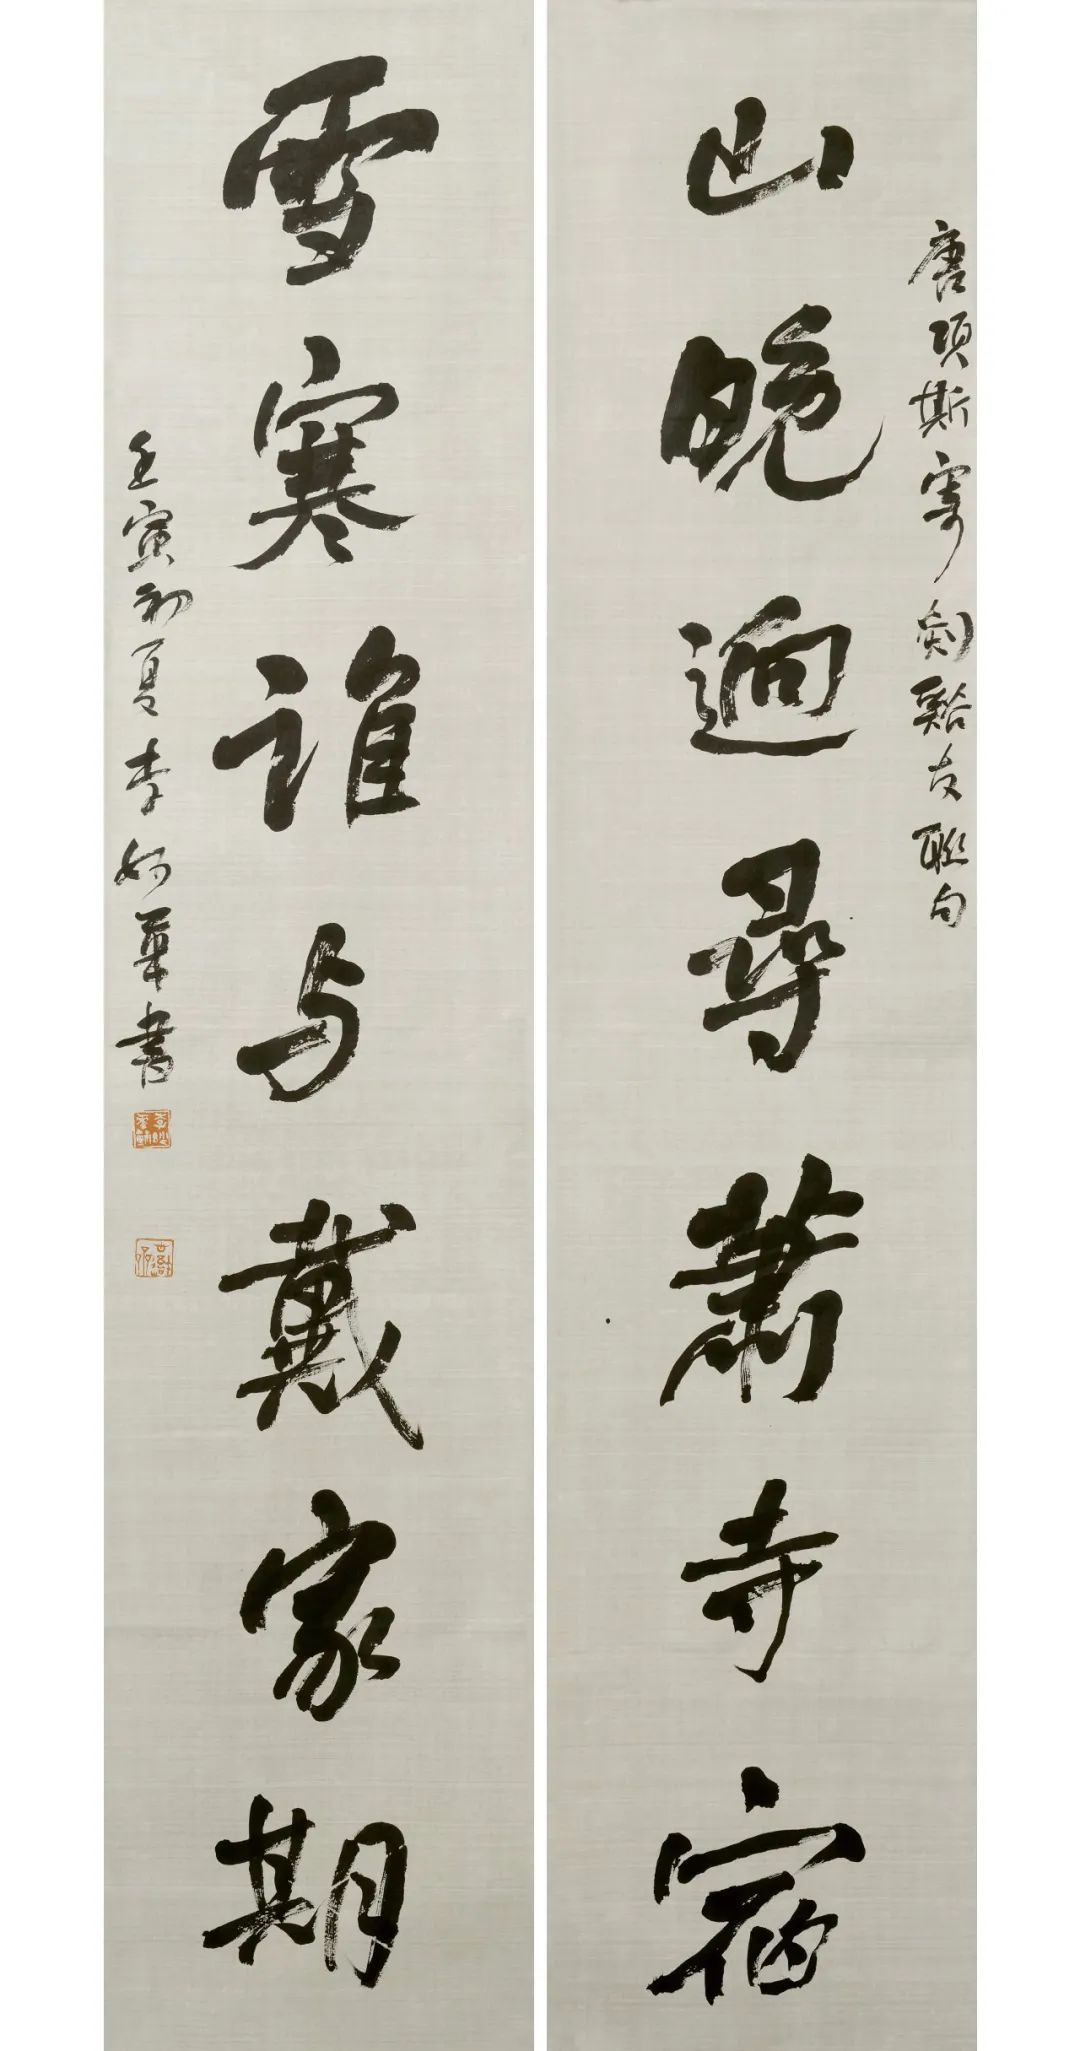 唐項斯寄剡谿友聯句
山晚迥尋蕭寺宿
雪寒誰与戴家期
壬寅初夏李妙華書